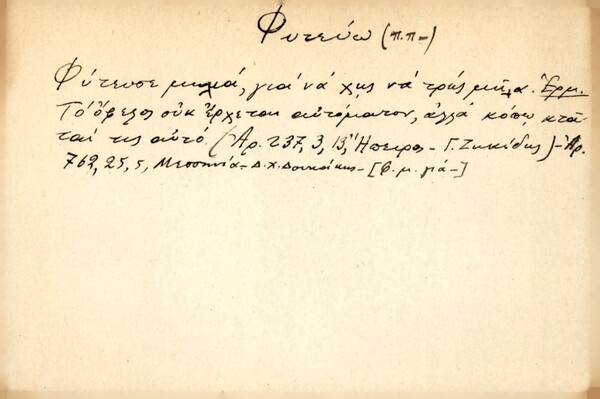 Φυτεύω (π.π-)
Φύτευσε μηλιά, γιά νά 'χῃς νά τρῴς μῆλα. Ἑρμ.
Τό ὄφελος οὐκ ἔρχεται αὐτόματον, ἀλλά κόπῳ κτᾶ-
ταί τις αὐτό. (Ἀρ. 237, 3, 13, Ἤπειρος - Γ. Ζηκίδης) - Ἀρ.
762, 25, 5, Μεσσηνία - Δ. Χ. Δουκάκης - [Φ. μ. γιά -]